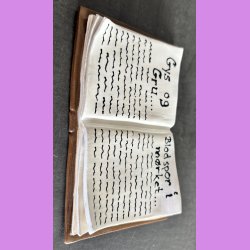 Gys og
Gru....
Blodspor i
mørket